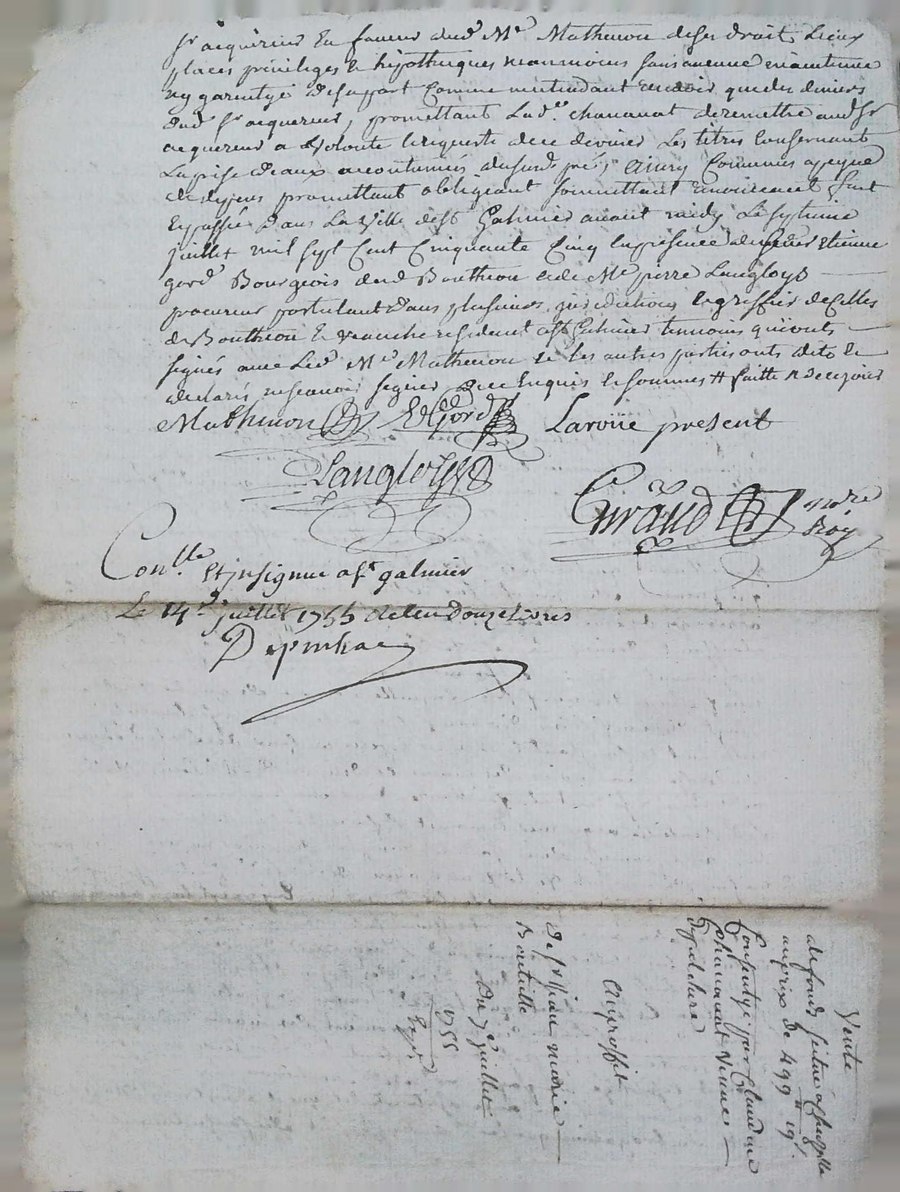 Sr acquereur En faveur dud Me Mathevon deses droits Lieux
places privileges & hipotheques neanmoins sans aucune maintenue
ny garentye desapart Comme nentendant que des deniers
dud Sr acquereur, promettant Lad chananat deremettre aud Sr
acquereur a volonté les titres Concernant
La prise deaux acoutumés dususd pré, Ainsy Convenus a peyne
de depens promettant obligeant soumettant renonceant fait
Et passé dans La Ville de St Galmier avant midy Le septieme
juillet mil sept Cent Cinquante Cinq En presence de Etienne
gord Bourgeois dud Bouthéon & de Me pierre Langloys
procureur postulant dans plusieurs juridictions & greffier de Celles
de Bouthéon & Veauche residant a St Galmier temoins qui ont
signés avec Led Me Mathevon & les autres parties ont dit &
declaré ne scavoir signer de ce Enquis & sommés # faitte
Mathevon E Gord Laroüe present
Langloys
Giraud nore Roy
Conlle Et jnsignué a St galmier
Le 14e juillet 1755 Receu douze Livres
Depinhac
Vente
de fonds situé a
au prix de 499 ll 19 s
Consentye par Claudine
Chananat Veuve
Au proffit
De Sr jean marie
Bataille
Du 7e juillet
1755
Expn